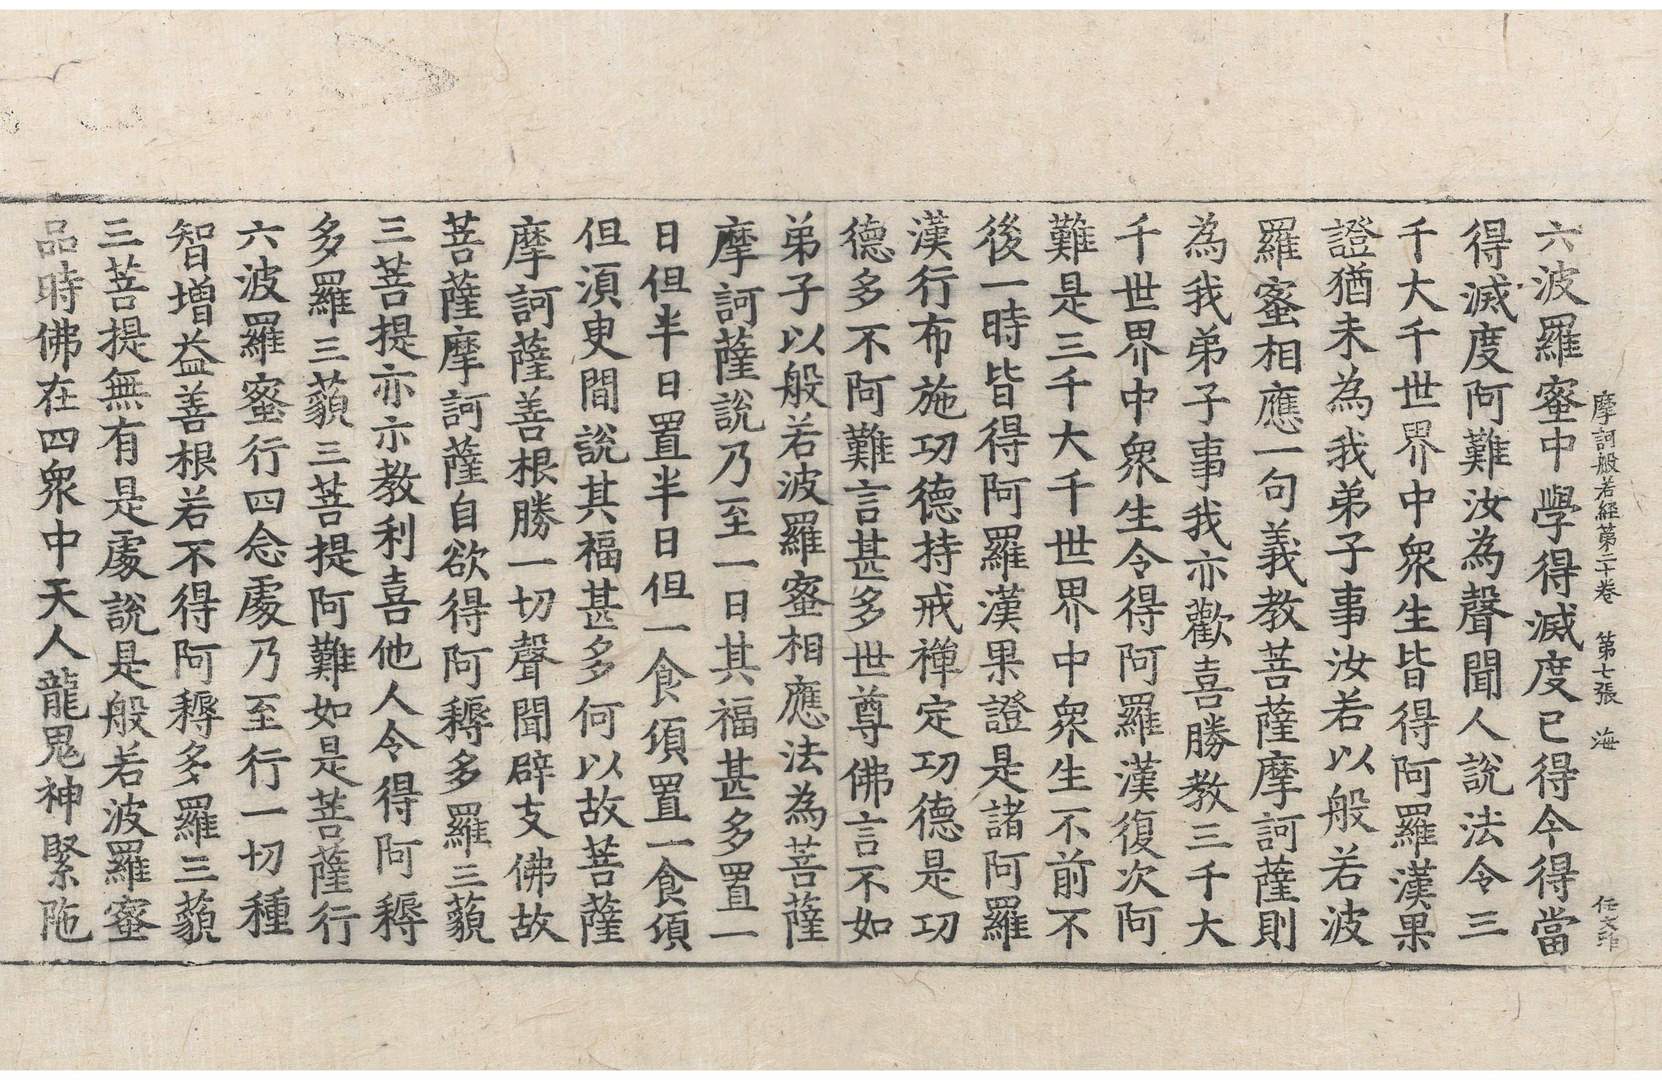 摩訶般若經第二十卷 第七張 海
六波羅蜜中學得滅度已得今得當
得滅度阿難汝為聲聞人說法令三
千大千世界中衆生皆得阿羅漢果
證猶未為我弟子事汝若以般若波
羅蜜相應一句義教菩薩摩訶薩則
為我弟子事我亦歡喜勝教三千大
千世界中衆生令得阿羅漢復次阿
難是三千大千世界中衆生不前不
後一時皆得阿羅漢果證是諸阿羅
漢行布施功德持戒禪定功德是功
德多不阿難言甚多世尊佛言不如
弟子以般若波羅蜜相應法為菩薩
摩訶薩說乃至一日其福甚多置一
日但半日置半日但一食頃置一食頃
但湏臾間說其福甚多何以故菩薩
摩訶薩善根勝一切聲聞辟支佛故
菩薩摩訶薩自欲得阿耨多羅三藐
三菩提亦示教利喜他人令得阿耨
多羅三藐三菩提阿難如是菩薩行
六波羅蜜行四念處乃至行一切種
智增益善根若不得阿耨多羅三藐
三菩提無有是處說是般若波羅蜜
品時佛在四衆中天人龍鬼神緊陁